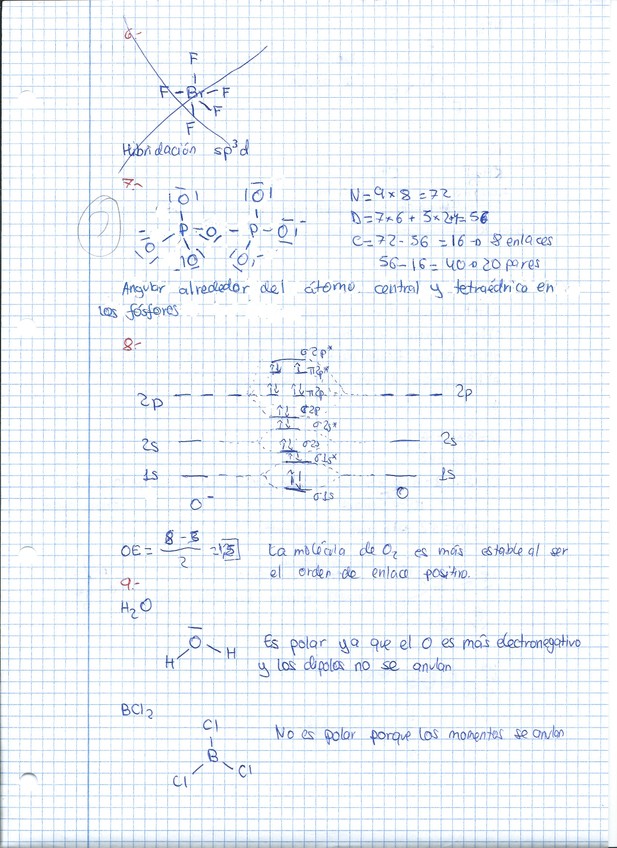 6.-
F
F - Br - F
F
F
Hibridación sp³d
7.-
|O| |O|
O P O P O
|O O
N = 9 x 8 = 72
D = 7x6 + 5x2+4 = 56
C = 72 - 56 = 16 → 8 enlaces
56 - 16 = 40 → 20 pares
Angular alrededor del átomo central y tetraédrica en
los fósforos
8.-
σ2p*
π2p*
2p π2p 2p
σ2p
σ2s*
2s σ2s 2s
σ1s*
1s σ1s 1s
O⁻ O
OE = 8 - 5 / 2 = 1,5 La molécula de O₂ es más estable al ser
el orden de enlace positivo.
9.-
H₂O
O
H H
Es polar ya que el O es más electronegativo
y los dipolos no se anulan
BCl₂
Cl
B
Cl Cl
No es polar porque los momentos se anulan